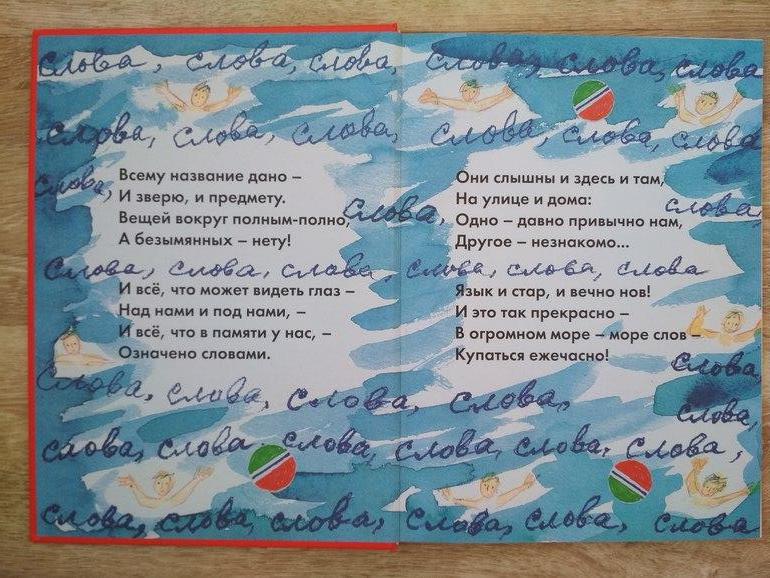 слова, слова, слова,
слова, слова, слова,
слова,
Всему название дано –
И зверю, и предмету.
Вещей вокруг полным-полно,
А безымянных – нету!
слова,
слова, слова, слова,
И всё, что может видеть глаз –
Над нами и под нами, –
И всё, что в памяти у нас, –
Означено словами.
слова, слова, слова,
слова, слова слова,
слова, слова, слова,
слова, слова, слова
слова, слова, слова
Они слышны и здесь и там,
На улице и дома:
слова,
Одно – давно привычно нам,
Другое – незнакомо...
слова, слова, слова
Язык и стар, и вечно нов!
И это так прекрасно –
В огромном море – море слов –
Купаться ежечасно!
слова,
слова,
слова,
слова, слова, слова,
слова, слова, слова